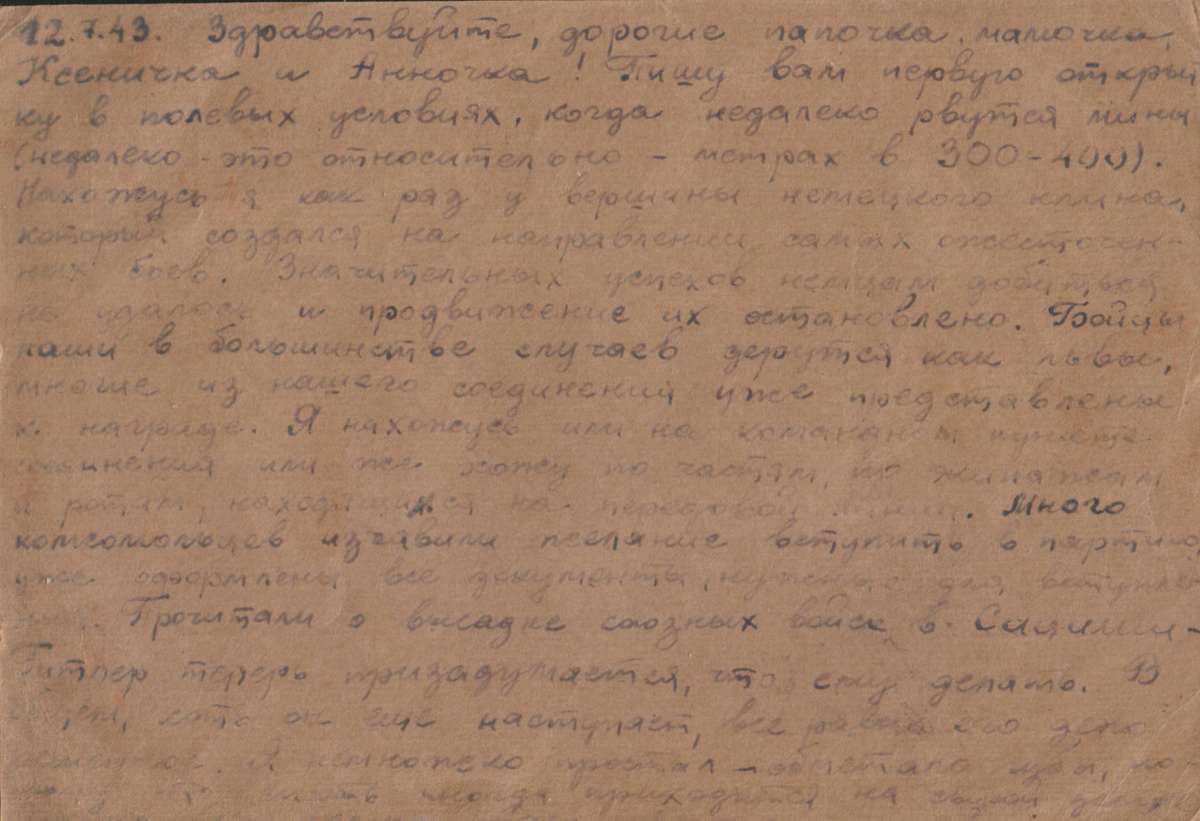 12.7.43. Здравствуйте, дорогие папочка, мамочка,
Ксеничка и Анночка! Пишу вам первую открыт
ку в полевых условиях, когда недалеко рвутся мины
(недалеко - это относительно - метрах в 300-400).
Нахожусь я как раз у вершины немецкого клина,
который создался на направлении самых ожесточен-
ных боев. Значительных успехов немцам добиться
не удалось и продвижение их остановлено. Бойцы
наши в большинстве случаев дерутся как львы,
многие из нашего соединения уже представлены
к награде. Я нахожусь или на командном пункте
соединения или же хожу по частям, по
и ротам, находящихся на передовой линии. Много
комсомольцев изъявили желание вступить в партию,
уже оформлены все документы, нужные для вступле
ния. Прочитали о высадке союзных войск в Сицилии -
Гитлер теперь призадумается, что ему делать. В
общем, хоть он еще наступает, все равно его дело
Я немножко простыл - обметало губы, по-
спать иногда приходится на сырой земле